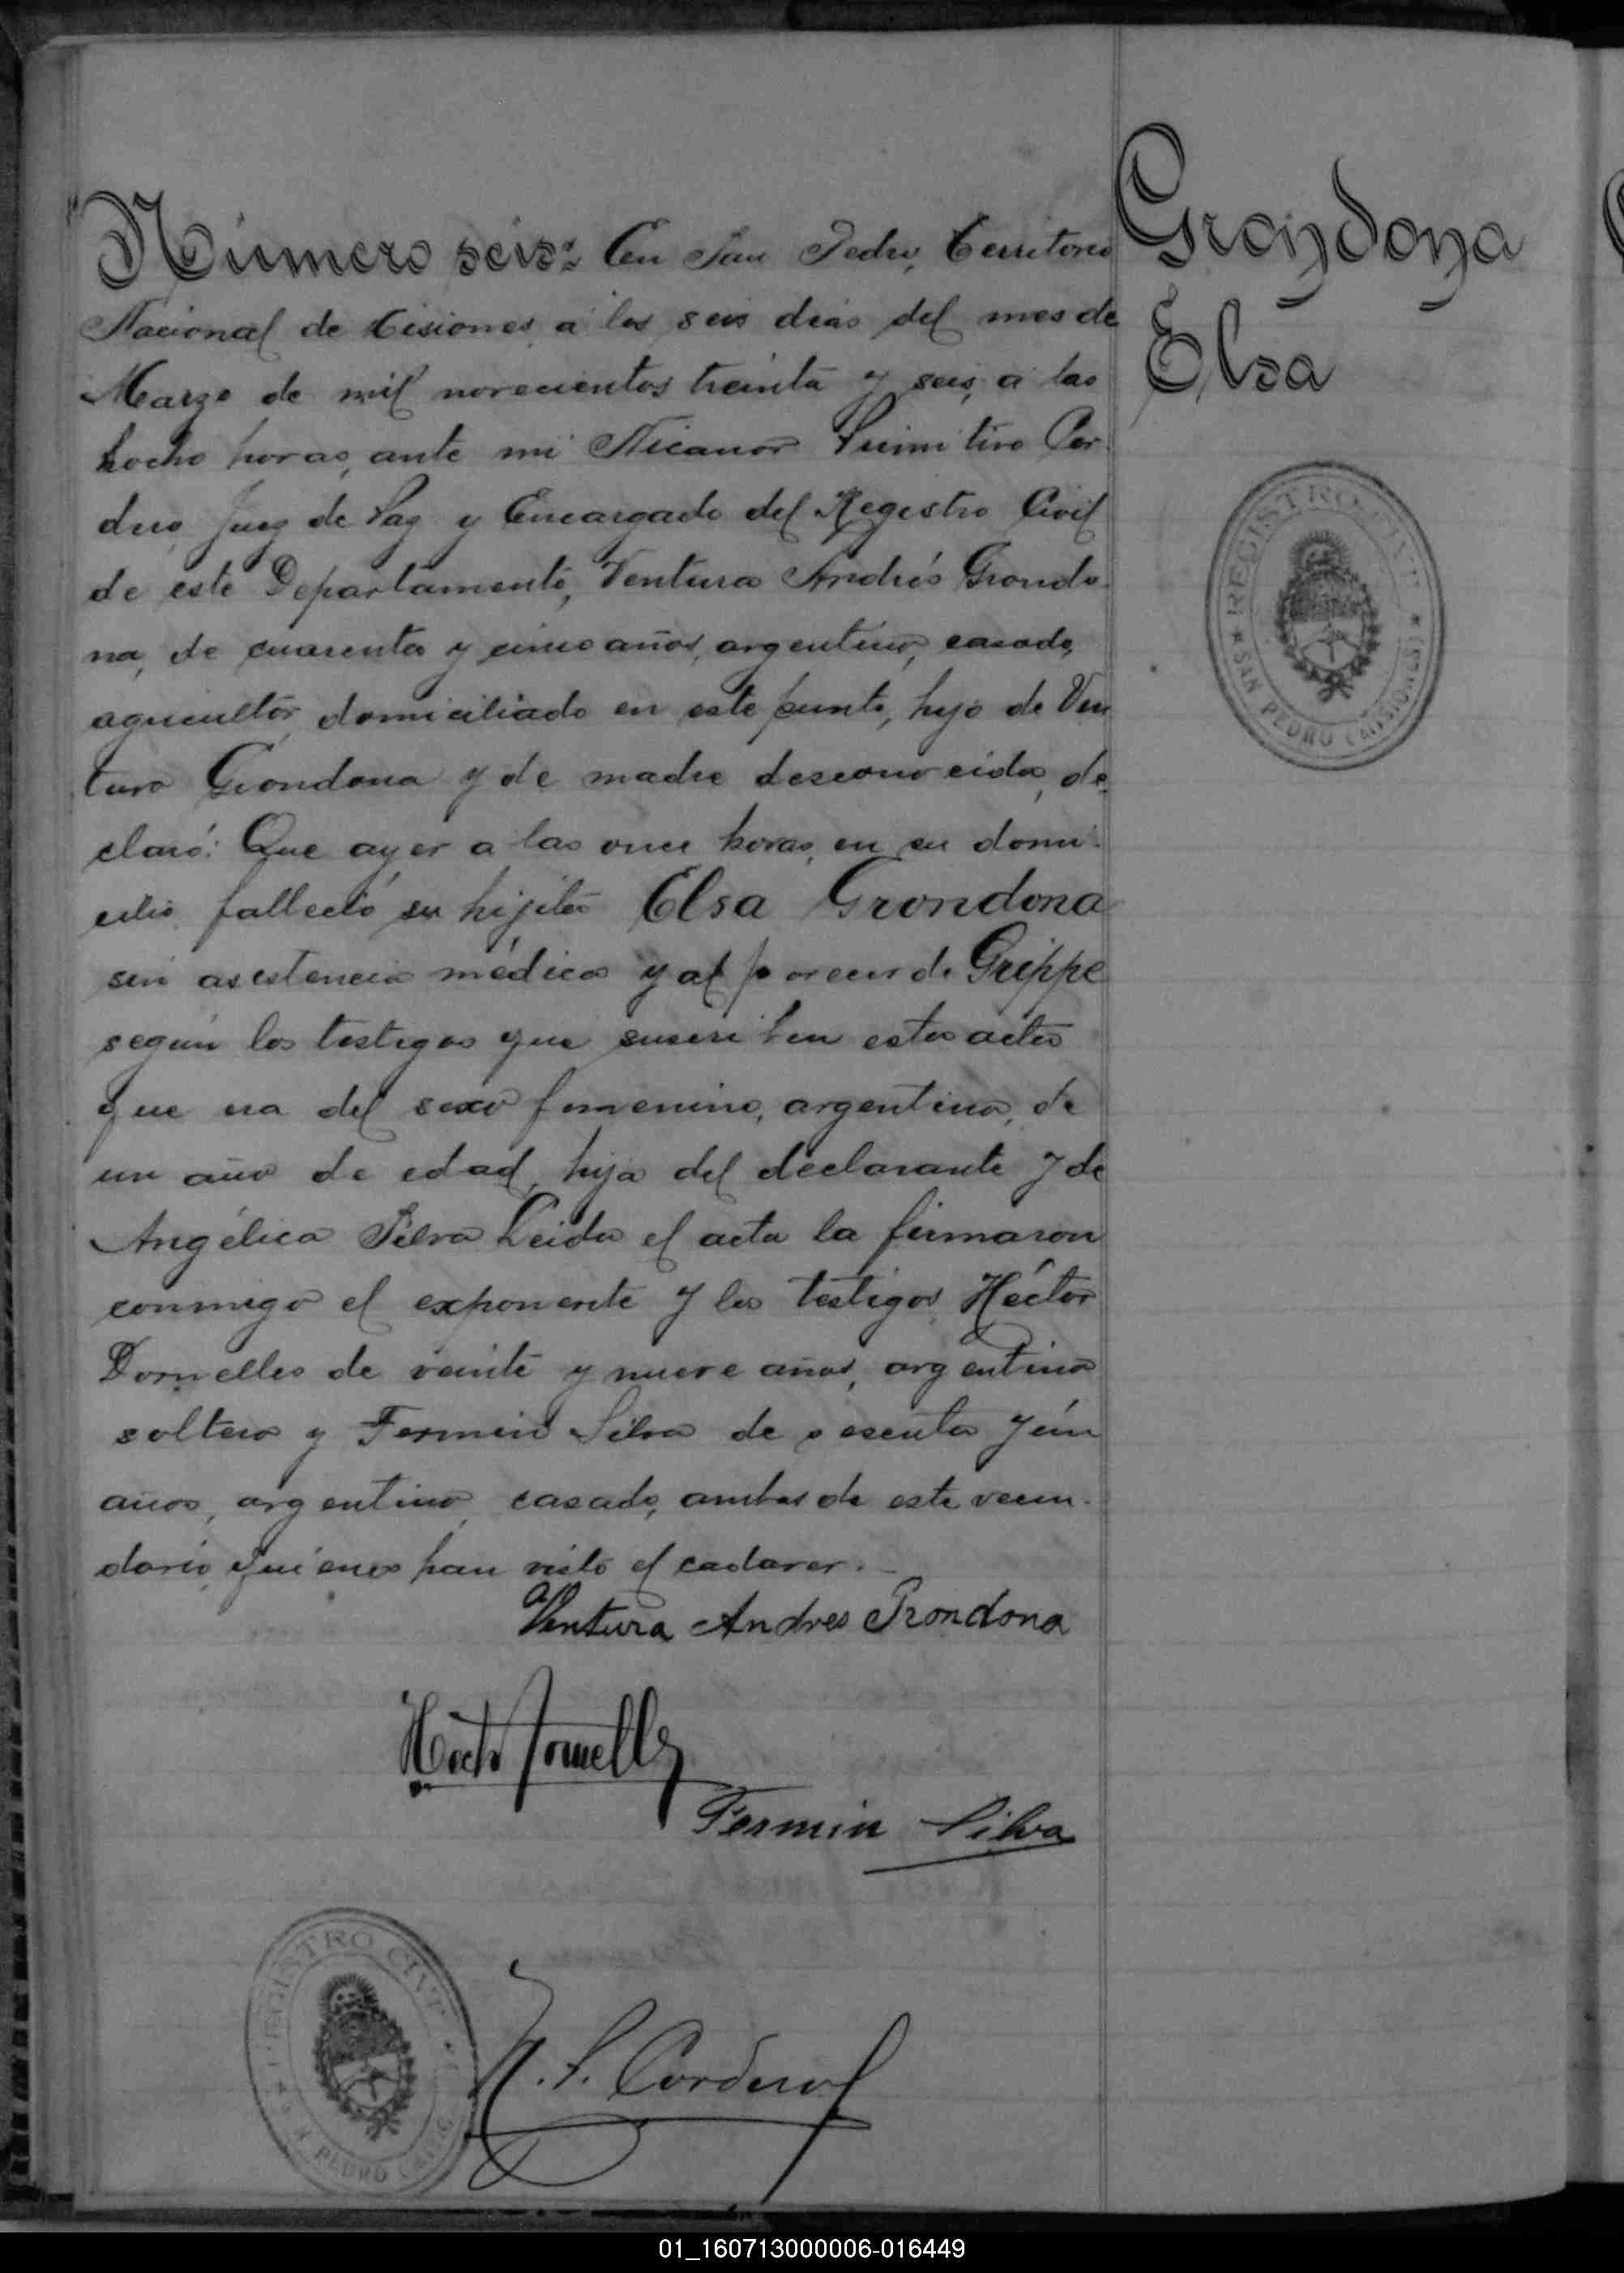 Número seis: En San Pedro, Territorio
Nacional de Misiones, a los seis días del mes de
Marzo de mil novecientos treinta y seis, a las
hocho horas, ante mi Nicanor Primitivo Cor-
dero, Juez de Paz y Encargado del Registro Civil
de este Departamento, Ventura Andrés Grondo-
na, de cuarenta y cinco años, argentino, casado,
agricultor, domiciliado en este punto, hijo de Ven
tura Grondona y de madre desconocida, de-
claró: Que ayer a las once horas, en su domi-
cilio falleció su hijita Elsa Grondona
sin asistencia médica y al parecer de Grippe
según los testigos que suscriben esta acta
que era del sexo femenino, argentina, de
un año de edad, hija del declarante y de
Angélica Silva Leida el acta la firmaron
conmigo el exponente y los testigos Héctor
Dornelles de veinte y nueve años, argentino
soltero y Fermin Silva de sesenta y un
años, argentino, casado, ambos de este vecin-
dario, quienes han visto el cadaver.
Ventura Andres Grondona
Héctor Dornelles
Fermin Silva
N. P. Cordero
REGISTRO CIVIL
SAN PEDRO (MISIONES)
Grondona
Elsa
REGISTRO CIVIL
SAN PEDRO (MISIONES)
01_160713000006-016449